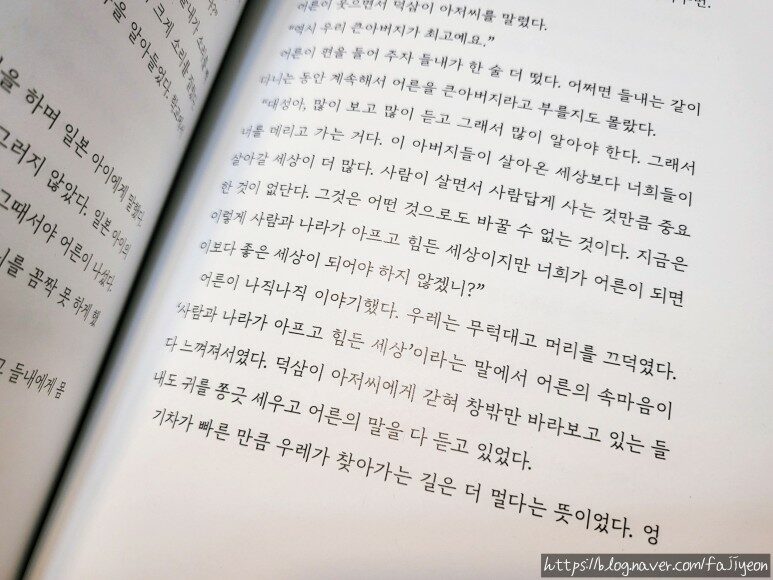 크게 소리를
을 알아들었다.
을 하며 일본 아이에게 말했다.
그러지 않았다. 일본 아이의
그때서야 어른이 나섰다.
를 꼼짝 못 하게 했
들내에게 몸
어른이 웃으면서 덕삼이 아저씨를 말렸다.
“역시 우리 큰아버지가 최고예요.”
어른이 편을 들어 주자 들내가 한 술 더 떴다. 어쩌면 들내는 같이
다니는 동안 계속해서 어른을 큰아버지라고 부를지도 몰랐다.
“대성아, 많이 보고 많이 듣고 그래서 많이 알아야 한다. 그래서
너를 데리고 가는 거다. 이 아버지들이 살아온 세상보다 너희들이
살아갈 세상이 더 많다. 사람이 살면서 사람답게 사는 것만큼 중요
한 것이 없단다. 그것은 어떤 것으로도 바꿀 수 없는 것이다. 지금은
이렇게 사람과 나라가 아프고 힘든 세상이지만 너희가 어른이 되면
이보다 좋은 세상이 되어야 하지 않겠니?”
어른이 나직나직 이야기했다. 우레는 무턱대고 머리를 끄덕였다.
‘사람과 나라가 아프고 힘든 세상’이라는 말에서 어른의 속마음이
다 느껴져서였다. 덕삼이 아저씨에게 갇혀 창밖만 바라보고 있는 들
내도 귀를 쫑긋 세우고 어른의 말을 다 듣고 있었다.
기차가 빠른 만큼 우레가 찾아가는 길은 더 멀다는 뜻이었다. 엉
https://blog.naver.com/fajiyeon